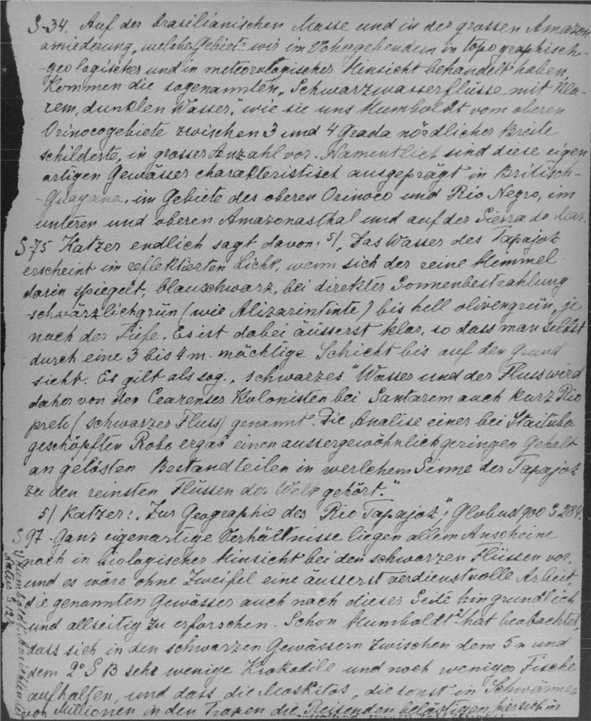 S-34. Auf der brasilianischen Masse und in der grossen Amazon
amiederung, welche Gebiete wir im Vohergehendem in topographisch-
geologischer und in meteorologischer Hinsicht behandelt haben,
kommen die sogenannten „Schwarzwasserflüsse mit kla-
rem, dunklen Wasser", wie sie uns Humboldt vom oberen
Orinocogebiete zwischen 3 und 4 Grada nördlicher Breite
schilderte, in grosser Anzahl vor. Namentlich sind diese eigen
artigen Gewässer charakteristisch ausgeprägt in Britisch-
Guayana, im Gebiete des oberen Orinoco und Rio Negro, im
unteren und oberen Amazonasthal und auf der Sierra do Mar.
S-75 Katzer endlich sagt davon: 5/, „Das Wasser des Tapajoz
erscheint im reflektierten Licht, wenn sich der reine Himmel
darin spiegelt, blauschwarz, bei direkter Sonnenbestrahlung
schwärzlichgrün (wie Alizarintinte) bis hell olivengrün, je
nach der Tiefe. Es ist dabei äusserst klar, so dass man selbst
durch eine 3 bis 4 m. mächtige Schicht bis auf den Grund
sieht. Es gilt als sog. „schwarzes" Wasser und der Fluss wird
daher von den Cearenser Kolonisten bei Santarem auch kurz Rio
preto (schwarzer Fluss) genannt". Die Analise einer bei Itaituba
geschöpften Robe ergab einen aussergewöhnlich geringen Gehalt
an gelösten Bestandteilen in welchem Sinne der Tapajoz
zu den reinsten Flüssen der Welt gehört."
5/ Katzer: „Zur Geographie des Rio Tapajoz", Globus 900 S 284.
S 97. Ganz eigenartige Verhältnisse liegen allem Anscheine
nach in biologischer Hinsicht bei den schwarzen Flüssen vor,
und es wäre ohne Zweifel eine äusserst verdienstvolle Arbeit
die genannten Gewässer auch nach dieser Seite hin gründlich
und allseitig zu erforschen. Schon Humboldt hat beobachtet,
dass sich in den schwarzen Gewässern zwischen dem 5 n und
dem 2° S B sehr wenige Krokodile und noch weniger Fische
aufhalten, und dass die Moskitos, die sonst in Schwärmen
von Millionen in den Tropen die Reisenden belästigen, hier